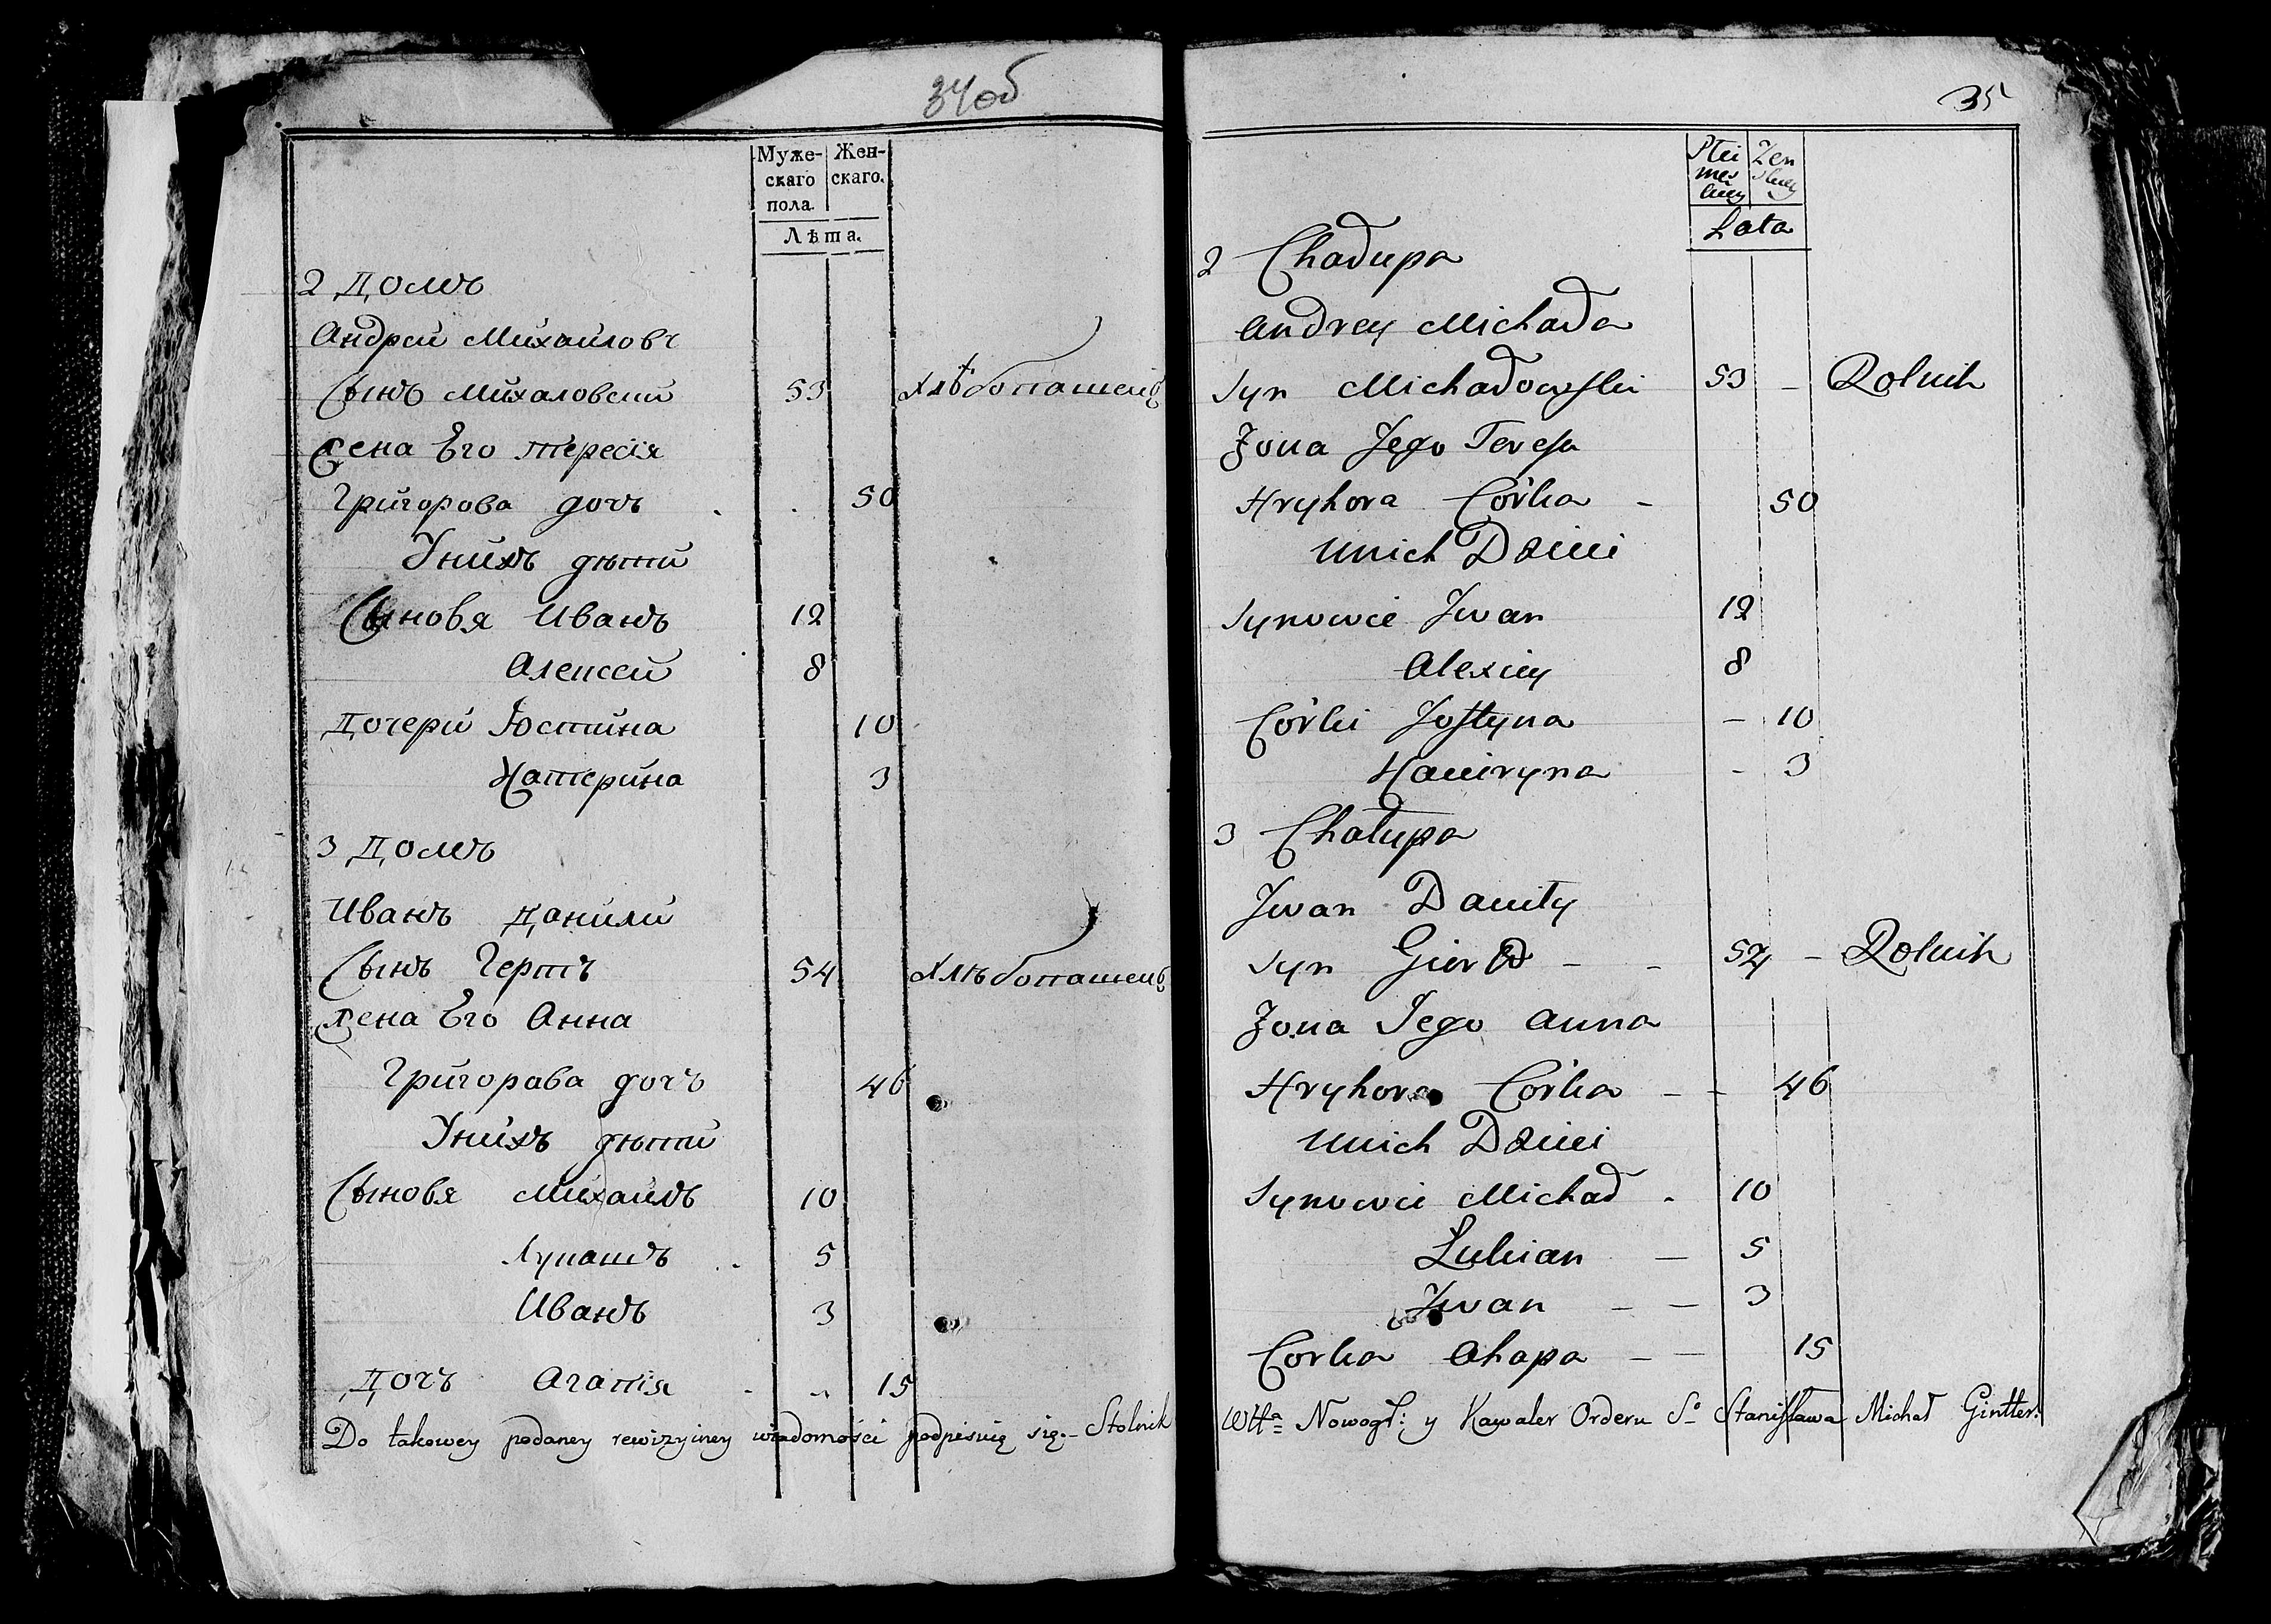 34об
Муже- Жен-
скаго скаго.
пола.
Лѣта.
2 Домъ
Андрей Михайловъ
Сынъ Михаловский 53 Хлѣбопашецъ
Жена Его Тересія
Григорова дочъ 50
Унихъ дѣти
Сыновя Иванъ 12
Алексей 8
Дочери Юстина 10
Катерина 3
3 Домъ
Иванъ Данили
Сынъ Гертъ 54 Хлѣбопашецъ
Жена Его Анна
Григорова дочъ 46
Унихъ дѣти
Сыновя Михаилъ 10
Лукашъ 5
Иванъ 3
Дочъ Агапія 15
Do takowey podaney rewizyiney wiadomości podpisuię się.- Stolnik
35
Płci Zen
mes skiey
kiey
Lata
2 Chałupa
Andrey Michała
Syn Michałowski 53 - Rolnik
Zona Jego Teresa
Hryhora Córka - 50
Unich Dzieci
Synowie Jwan 12
Alexiey 8
Córki Justyna - 10
Kaciryna - 3
3 Chałupa
Jwan Daniły
Syn Giert - - 54 - Rolnik
Zona Jego Anna
Hryhora Córka - - 46
Unich Dzieci
Synowie Michał - 10
Łukian - 5
Jwan - - 3
Corka Ahapa - - 15
Wttа Nowogł: y Kawaler Orderu So Stanisława Michał Gintter.